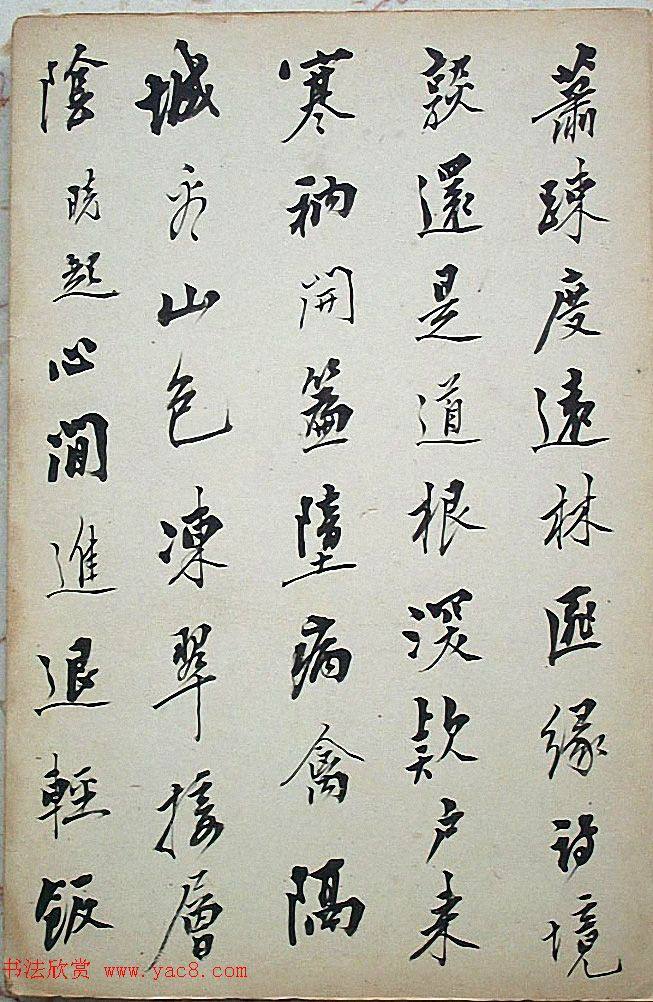 蕭疎度遠林匪緣詩境
談還是道根深欵戶来
寒衲開墮病禽隔
城看山色凍翠接層
陰曉起心閒進退輕飯
书法欣赏 www.yac8.com